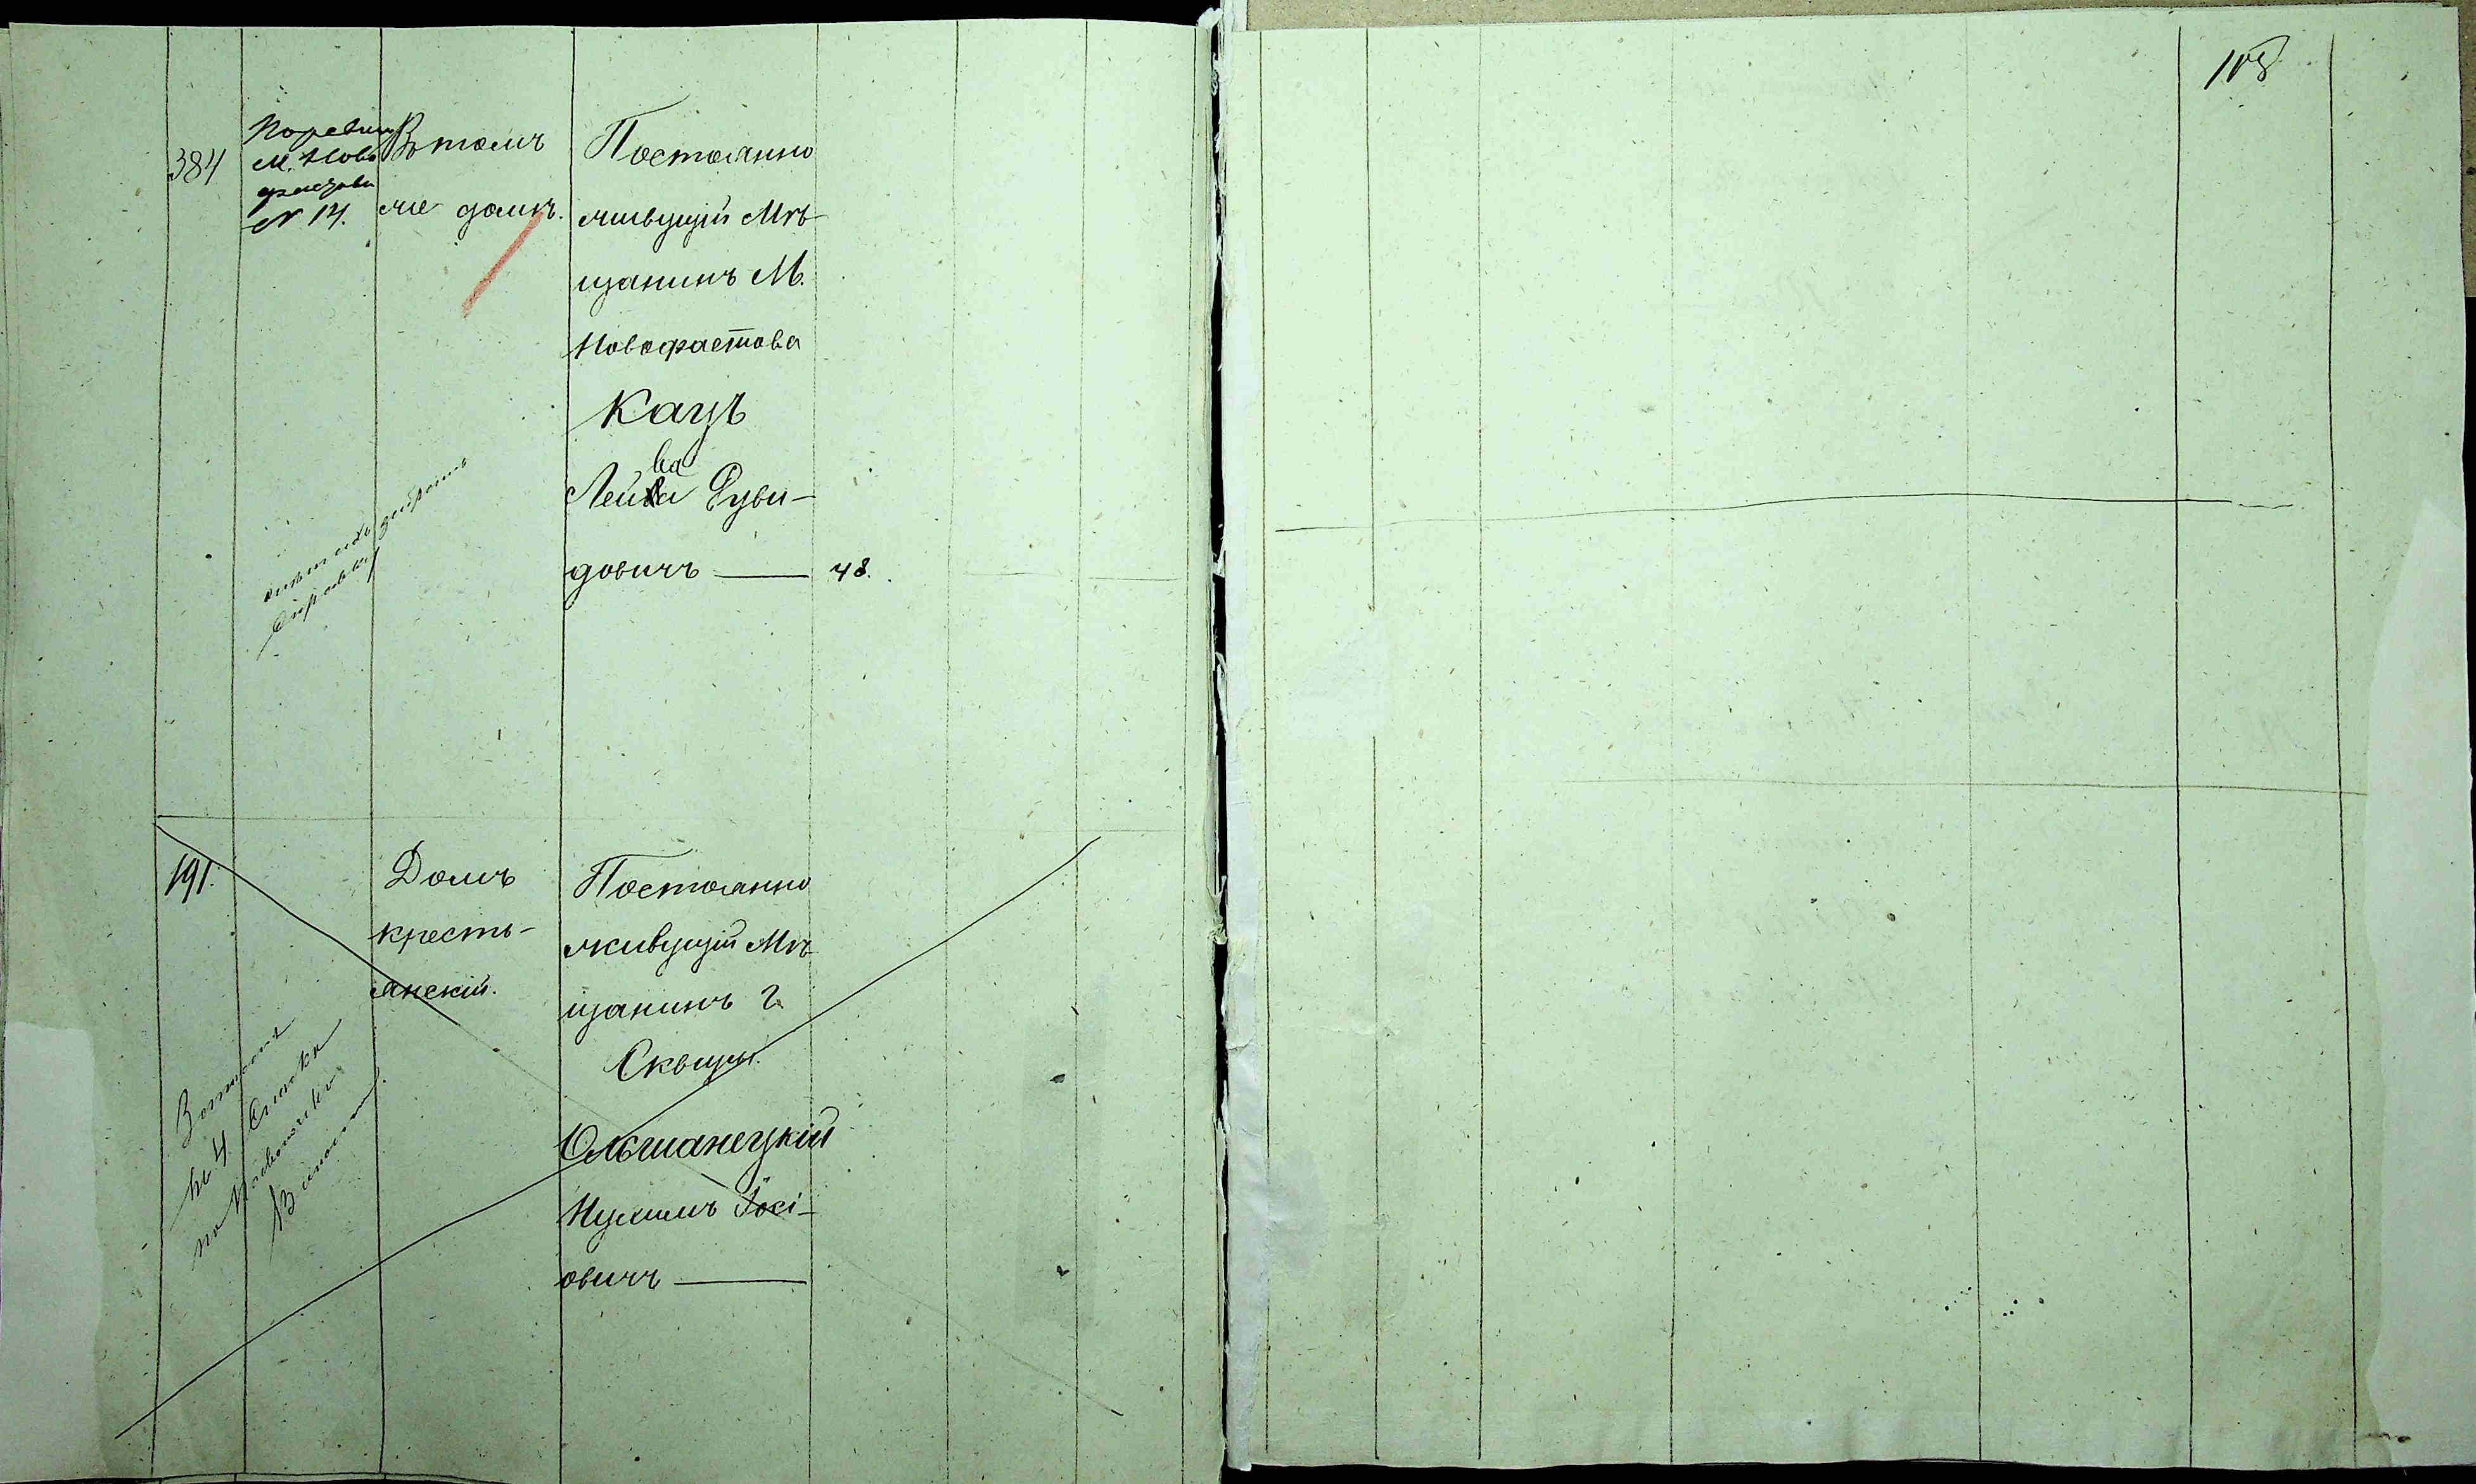 108
384
По ревиз
М. Ново
фастова
№ 14.
Въ томъ
же домѣ.
Постоянно
живущій Мѣ-
щанинъ М.
Новофастова
Кацъ
ва
Лейба Дуви-
довичъ — 48.
справку
191.
Домъ
кресть-
янскій.
Постоянно
живущій Мѣ-
щанинъ г.
Сквиры.
Ольшанецкій
Нухимъ Іосі-
овичъ —
№ 4